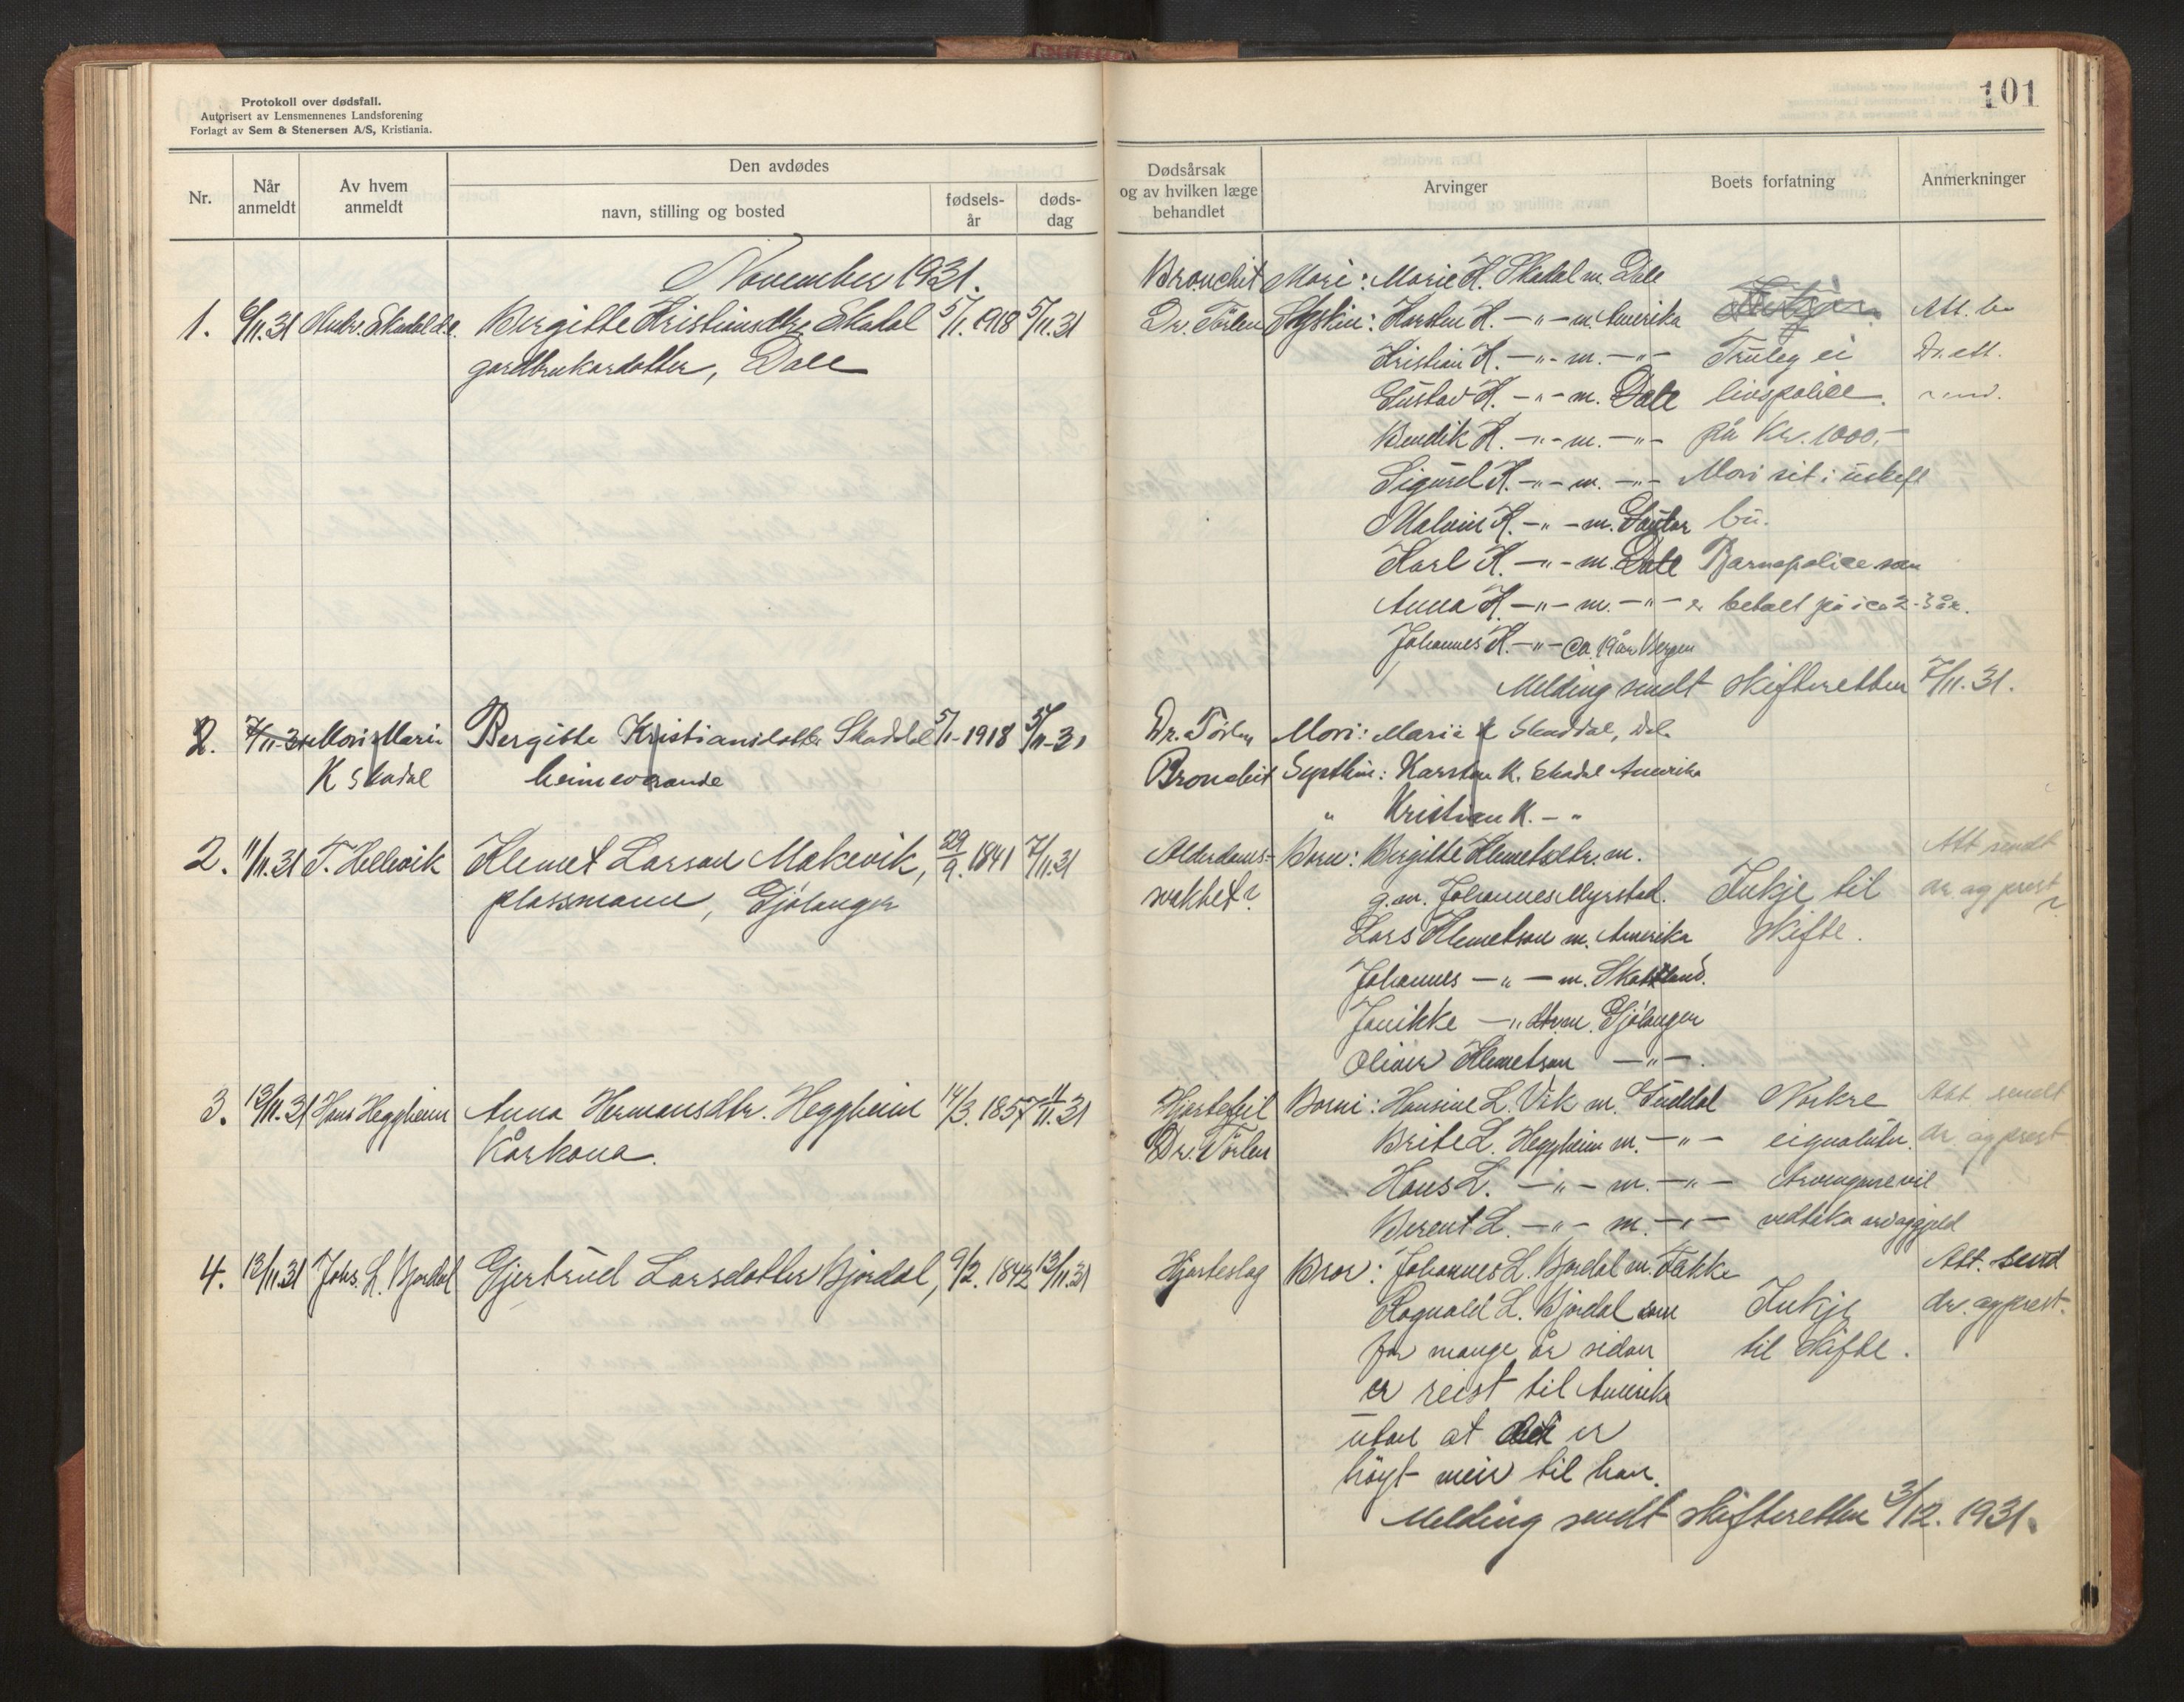 Protokoll over dødsfall.
Autorisert av Lensmennenes Landsforening
Forlagt av Sem & Stenersen A/S, Kristiania.
Nr.
Når anmeldt
Av hvem anmeldt
Den avdødes
navn, stilling og bosted
fødsels-år
døds-dag
November 1931.
1. 6/11.31 Andr. Skadal d.e. Bergitte Kristiansdtr. Skadal 5/1.1918 5/11.31
gardbrukardotter, Dale
2. 7/11-31 Mori Marie Bergitte Kristiansdotter Skaddal 5/1-1918 5/11-31
K Skadal heimeverande
2. 11/11.31 T. Hellevik Klemet Larson Makevik, 29/9.1841 7/11.31
plassmann, Gjølanger
3. 13/11.31 Hans Heggheim Anna Hermansdtr. Heggheim 14/3.1857 11/11.31
Kårkona.
4. 13/11.31 Johs. L. Bjordal Gjertrud Larsdotter Bjordal, 9/2.1842 13/11.31
101
Dødsårsak og av hvilken læge behandlet
Arvinger
Boets forfatning
Anmerkninger
Bronchit Mori: Marie K. Skadal m. Dale
Dr. Törlen Syskin: Karsten K. -"- m. Amerika Att. br
Kristian K. -"- m. -"- Truleg ei Dr. att.
Gustav K. -"- m. Dale livspolice
Bendik K. -"- m. -"- på Kr. 1000,-
Sigurd K. -"- m. -"- Mori sit i uskift
Malvin K. -"- m. bu.
Karl K. -"- m. Dale Barnepolice som
Anna K. -"- m. -"- er betalt på i ca 2-3 år.
Johannes K. -"- ca. 19 år Bergen
Melding sendt skifteretten 7/11.31.
Dr. Törlen Mori: Marie K Skaddal, Dale
Bronchit Systkin: Karsten K. Skadal Amerika
" Kristian K. - "
Alderdoms- Born: Bergitte Klemetsdtr. m. Att sendt
svakhet? g.m. Johannes Myrstad. Inkje til dr. og prest
Lars Klemetson m. Amerika skifte.
Johannes -"- m. Skotland.
Jonikke -"- dtr. m. Gjølanger
Oliver Klemetson -"-.
Hjartefeil Borni: Hansine L. Vik m. Guddal Nokre Att sendt
Dr. Törlen Brite L. Heggheim m. -"- eignaluter. dr. og prest
Hans L. -"- m. -"- Arvingane vil
Berent L. -"- m. -"- vedtaka arv og gjeld
Hjarteslag Bror: Johannes L. Bjordal m. Takke Att. send
Ragnald L. Bjordal som Inkje dr. og prest.
for mange år sidan til skifte.
er reist til Amerika
utan at det er
høyrt meir til han.
Melding sendt skifteretten 3/12. 1931.